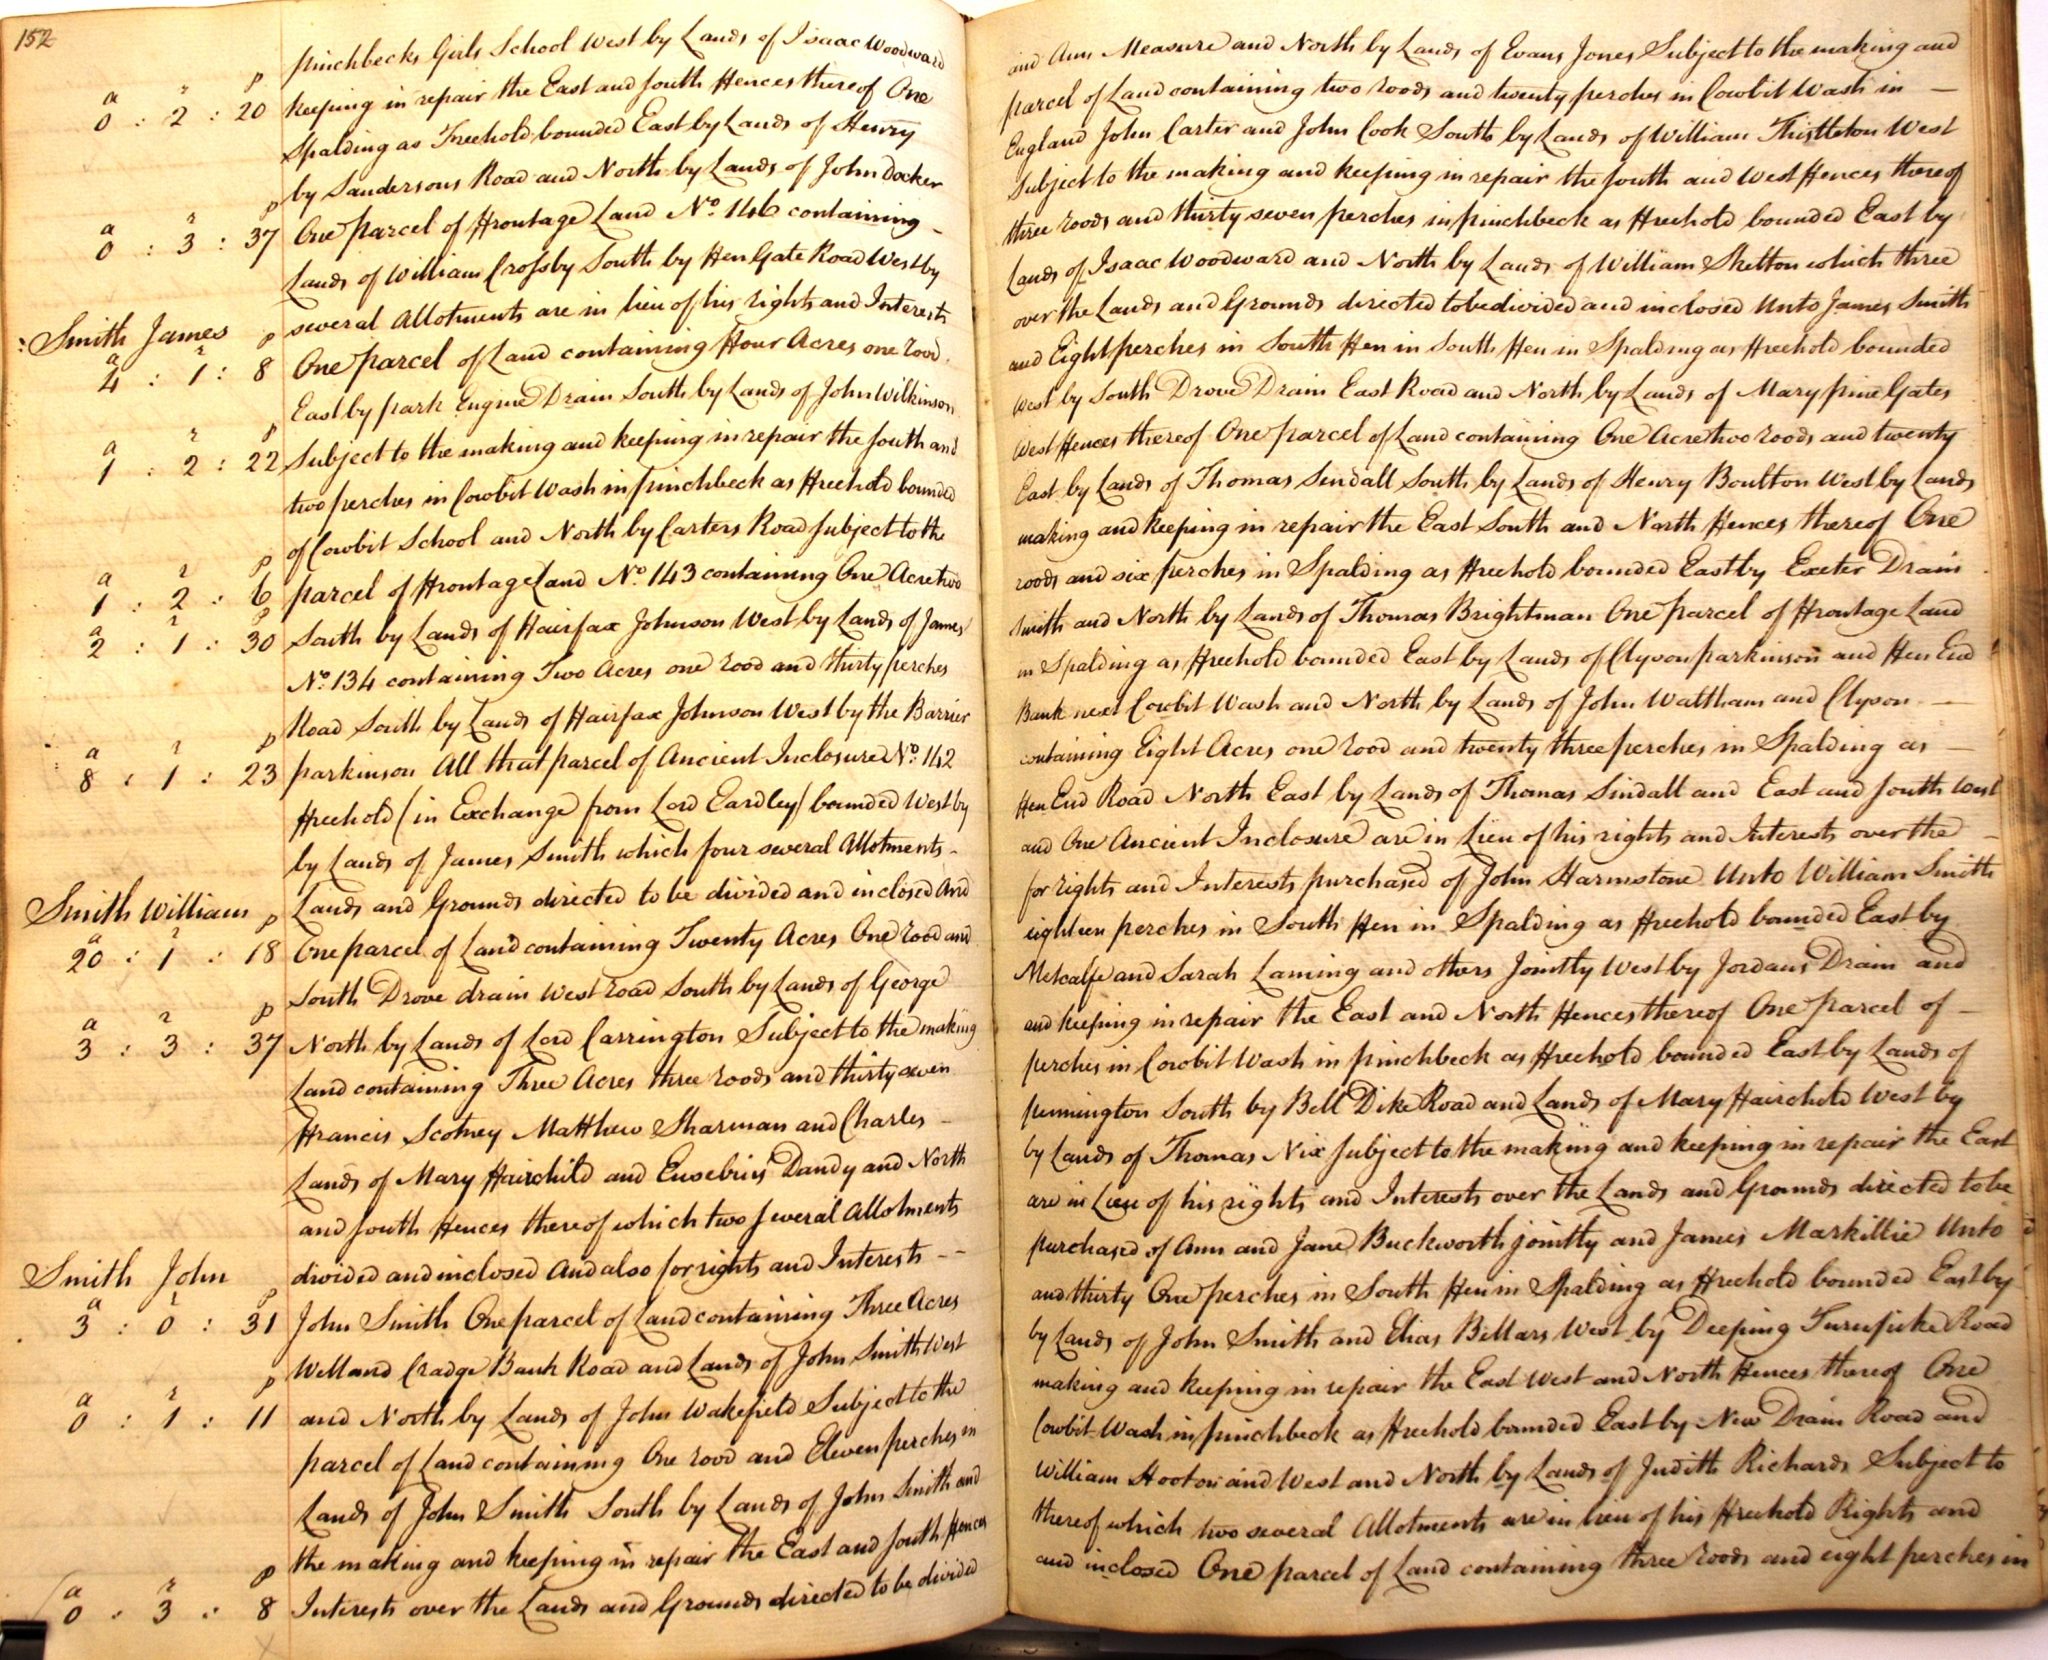 152
pinchbecks Girls School West by Lands of Isaac Woodward and Ann Measure and North by Lands of Evans Jones Subject to the making and
a r p
0 : 2 : 20 keeping in repair the East and South Fences thereof One parcel of Land containing two roods and twenty perches in Cowbit Wash in —
Spalding as Freehold bounded East by Lands of Henry England John Carter and John Cook South by Lands of William Thistleton West
by Sandersons Road and North by Lands of John Docker Subject to the making and keeping in repair the South and West Fences thereof
a r p
0 : 3 : 37 One parcel of Frontage Land No. 146 containing - three roods and thirty seven perches in pinchbeck as Freehold bounded East by
Lands of William Crossby South by Fen Gate Road West by Lands of Isaac Woodward and North by Lands of William Skelton which three
several Allotments are in lieu of his rights and Interests over the Lands and Grounds directed to be divided and inclosed Unto James Smith
Smith James
a r p
4 : 1 : 8 One parcel of Land containing Four Acres one rood and Eight perches in South Fen in South Fen in Spalding as Freehold bounded
East by park Engine Drain South by Lands of John Wilkinson West by South Drove Drain East Road and North by Lands of Mary pine Gates
a r p
1 : 2 : 22 Subject to the making and keeping in repair the South and West Fences thereof One parcel of Land containing One Acre two roods and twenty
two perches in Cowbit Wash in pinchbeck as Freehold bounded East by Lands of Thomas Sindall South by Lands of Henry Boulton West by Lands
of Cowbit School and North by Carters Road Subject to the making and keeping in repair the East South and North Fences thereof One
a r p
1 : 2 : 6 parcel of Frontage Land No. 143 containing One Acre two roods and six perches in Spalding as Freehold bounded East by Exeter Drain
a r p
2 : 1 : 30 South by Lands of Fairfax Johnson West by Lands of James Smith and North by Lands of Thomas Brightman One parcel of Frontage Land
No. 134 containing Two Acres one rood and thirty perches in Spalding as Freehold bounded East by Lands of Clyson parkinson and Fen End
Road South by Lands of Fairfax Johnson West by the Barrier Bank next Cowbit Wash and North by Lands of John Waltham and Clyson —
a r p
8 : 1 : 23 parkinson All that parcel of Ancient Inclosure No. 142 containing Eight Acres one rood and twenty three perches in Spalding as —
Freehold (in Exchange from Lord Eardley) bounded West by Fen End Road North East by Lands of Thomas Sindall and East and South West
by Lands of James Smith which four several Allotments - and One Ancient Inclosure are in Lieu of his rights and Interests over the —
Lands and Grounds directed to be divided and inclosed And for rights and Interests purchased of John Harmstone Unto William Smith
Smith William
a r p
20 : 1 : 18 One parcel of Land containing Twenty Acres One rood and eighteen perches in South Fen in Spalding as Freehold bounded East by
South Drove drain West road South by Lands of George Metcalfe and Sarah Laming and others Jointly West by Jordans Drain and
a r p
3 : 3 : 37 North by Lands of Lord Carrington Subject to the making and keeping in repair the East and North Fences thereof One parcel of —
Land containing Three Acres three roods and thirty seven perches in Cowbit Wash in pinchbeck as Freehold bounded East by Lands of
Francis Scotney Matthew Sharman and Charles - pennington South by Bell Dike Road and Lands of Mary Fairchild West by
Lands of Mary Fairchild and Eusebius Dandy and North by Lands of Thomas Nix Subject to the making and keeping in repair the East
and South Fences thereof which two several Allotments are in Lieu of his rights and Interests over the Lands and Grounds directed to be
divided and inclosed And also for rights and Interests -- purchased of Ann and Jane Buckworth jointly and James Markillie Unto
Smith John
a r p
3 : 0 : 31 John Smith One parcel of Land containing Three Acres and thirty One perches in South Fen in Spalding as Freehold bounded East by
Welland Cradge Bank Road and Lands of John Smith West by Lands of John Smith and Elias Bellars West by Deeping Turnpike Road
a r p
0 : 1 : 11 and North by Lands of John Wakefield Subject to the making and keeping in repair the East West and North Fences thereof One
parcel of Land containing One rood and Eleven perches in Cowbit Wash in pinchbeck as Freehold bounded East by New Drain Road and
Lands of John Smith South by Lands of John Smith and William Hooton and West and North by Lands of Judith Richards Subject to
the making and keeping in repair the East and South Fences thereof which two several Allotments are in lieu of his Freehold Rights and
a r p
0 : 3 : 8 Interests over the Lands and Grounds directed to be divided and inclosed One parcel of Land containing three roods and eight perches in